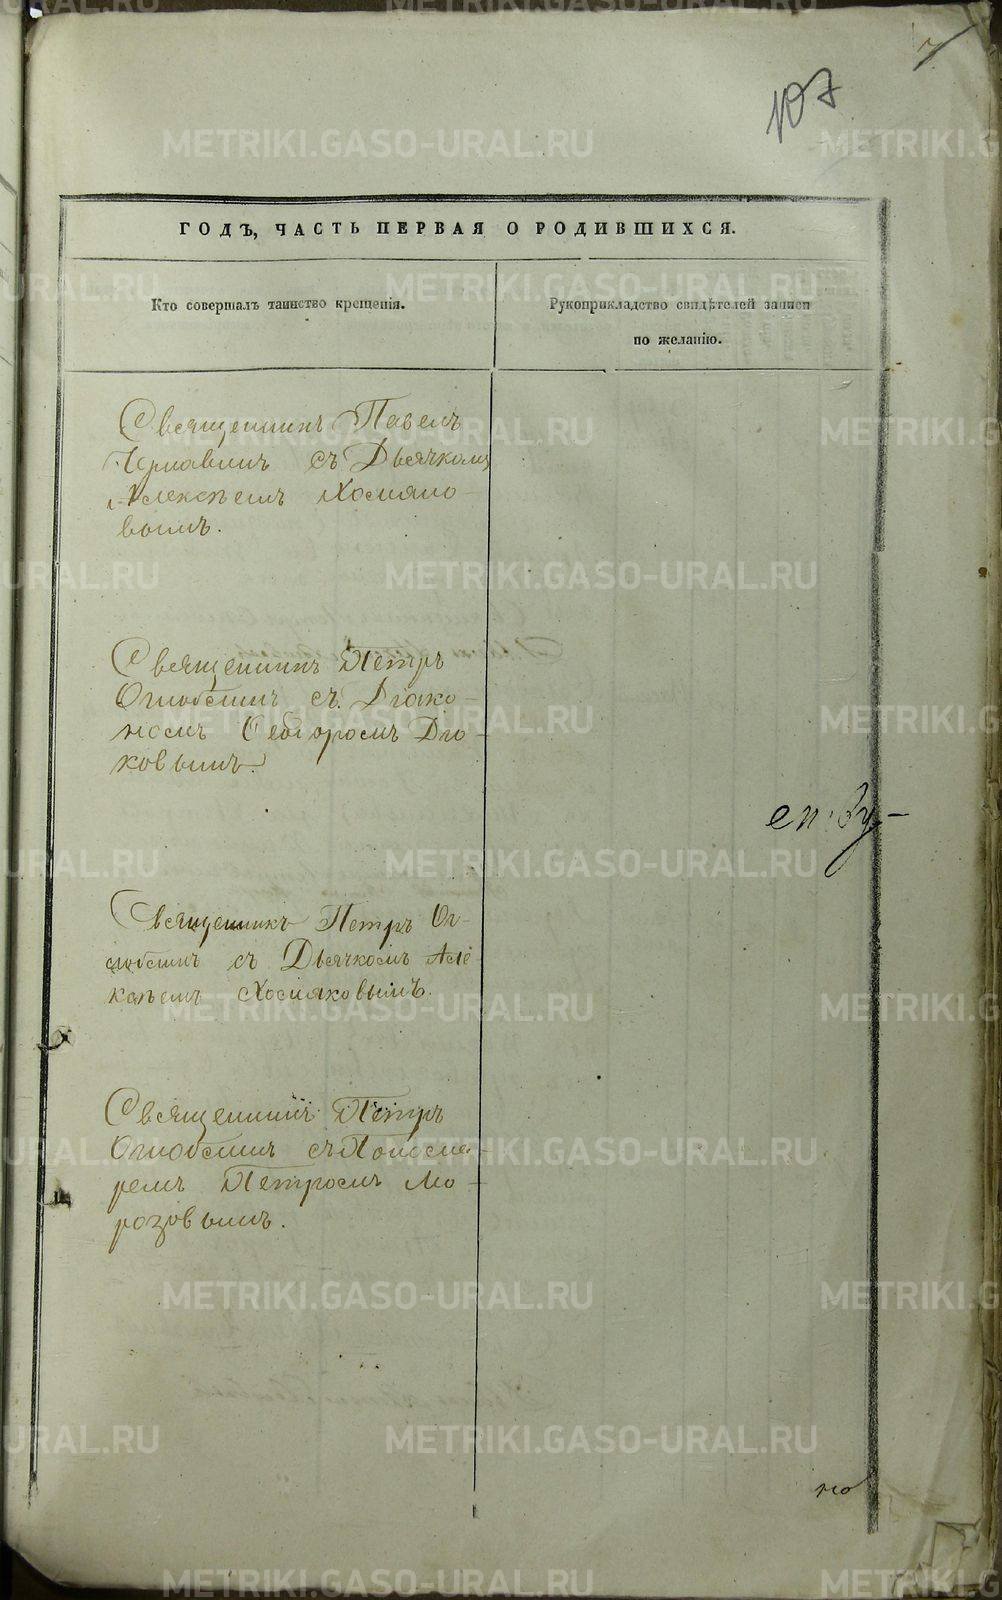 107
ГОДЪ, ЧАСТЬ ПЕРВАЯ О РОДИВШИХСЯ.
Кто совершалъ таинство крещенія.
Рукоприкладство свидѣтелей записи
по желанію.
Священникъ Павелъ
съ Дьячкомъ
Алексѣемъ Хомяко-
вымъ.
Священникъ Петръ
Оглоблинъ съ Діяко-
номъ Ѳеодоромъ Дьо-
ковымъ.
Священникъ Петръ Ог-
лоблинъ съ Дьячкомъ Але-
ксѣемъ Хомяковымъ.
Священникъ Петръ
Оглоблинъ съ Поносма-
ремъ Петромъ Мо-
розовымъ.
но
METRIKI.GASO-URAL.RU